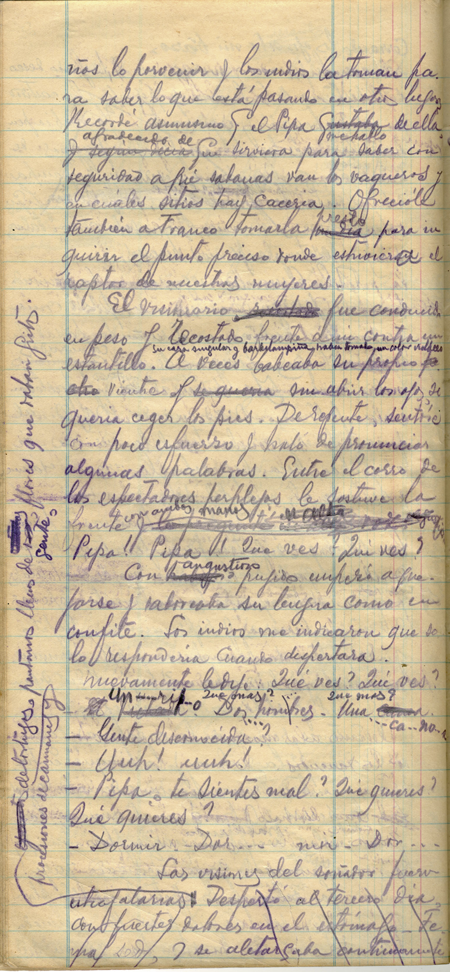 ños lo porvenir y los indios la toman pa-
ra saber lo que está pasando en otro lugar.
Recordé asimismo q el Pipa gustaba de ella
agradecido de
y según decía que sirviera para saber con
seguridad a qué sabanas van los vaqueros y
en cuáles sitios hay cacería. Ofrecióle
también a Franco tomarla para in
quirir el punto preciso donde estuviera el
raptor de nuestras mujeres.
El visionario fue conducido
en peso y recostado frente a mí contra un
estantillo. Su cara singular y barbilampiña había tomado un color violáceo
A veces babeaba su propio
vientre y sin abrir los ojos, se
quería coger los pies. De repente,
con poco esfuerzo y trató de pronunciar
algunas palabras. Entre el corro de
los espectadores perplejos le sostuve la
frente con ambas manos
Pipa! Pipa!! Qué ves? Qué ves?
Con angustioso pujido empezó a que-
jarse y saboreaba su lengua como un
confite. Los indios me indicaron que só-
lo respondería cuando despertara.
nuevamente le dije: Qué ves? Qué ves?
- Un - ri - o Qué más? Dos hombres. Qué más? Una
ca - no - a
- Gente desconocida?
- Uuh! uuh!
- Pipa, te sientes mal? Qué quieres?
Qué quieres?
- Dormir - Dor... mir - Dor...
Las visiones del soñador fueron
Despertó al tercero día,
con fuertes dolores en el estómago. Te-
y se aletargaba continuamente
procesiones de caimanes y
de tortugas, pantanos llenos de gente, flores que daban gritos.